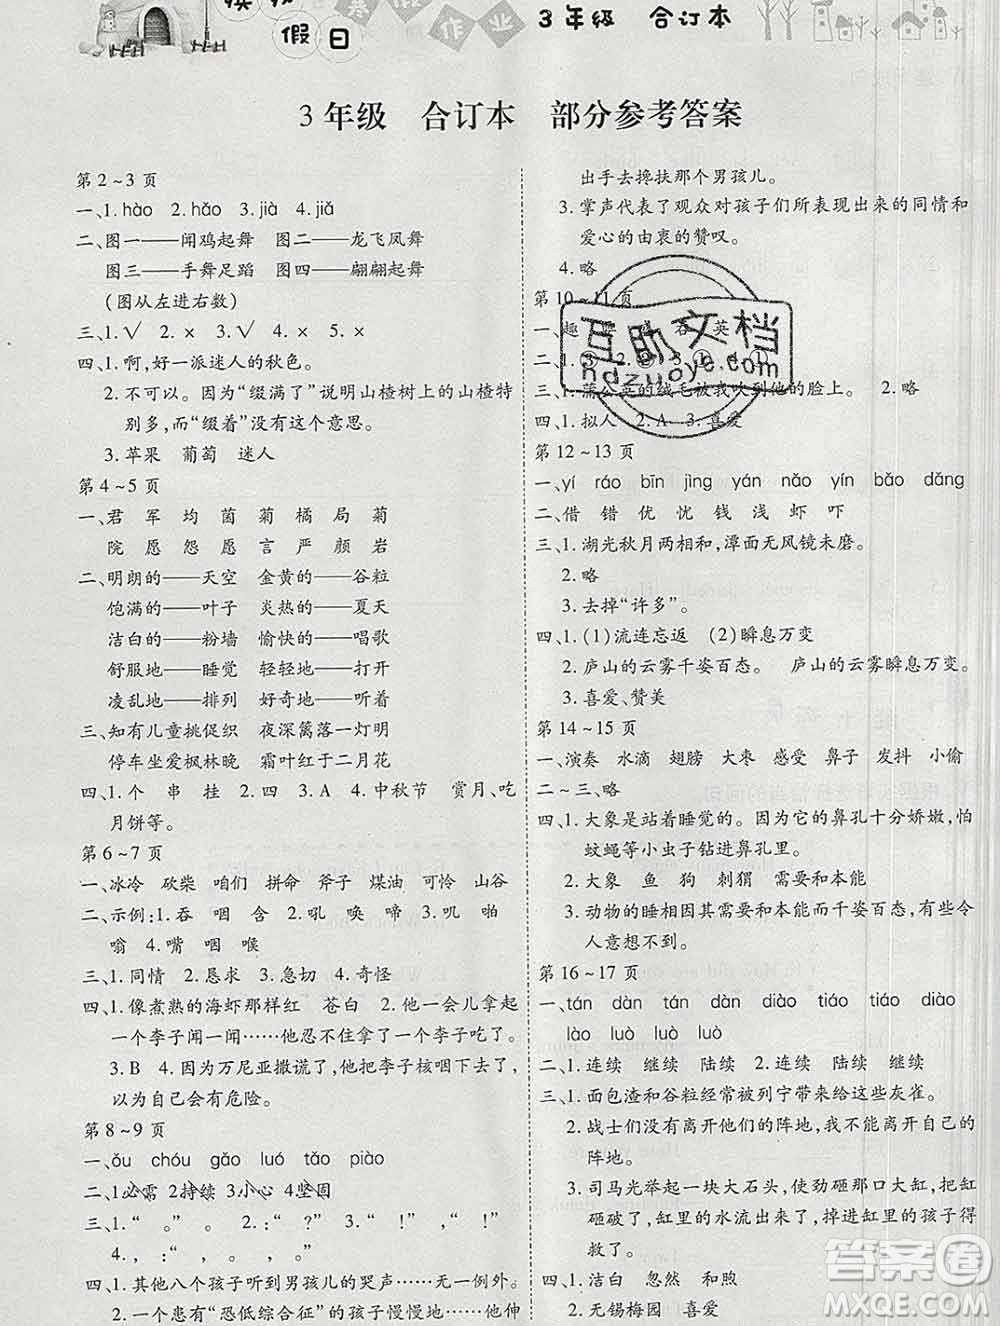 假日
寒假作业
3年级 合订本
3年级 合订本 部分参考答案
第2~3页
一、1.hào 2.hǎo 3.jià 4.jiǎ
二、图一——闻鸡起舞 图二——龙飞凤舞
图三——手舞足蹈 图四——翩翩起舞
(图从左进右数)
三、1.√ 2.× 3.√ 4.× 5.×
四、1.啊,好一派迷人的秋色。
2.不可以。因为“缀满了”说明山楂树上的山楂特
别多,而“缀着”没有这个意思。
3.苹果 葡萄 迷人
第4~5页
一、君 军 均 菌 菊 橘 局 菊
院 愿 怨 愿 言 严 颜 岩
二、明朗的——天空 金黄的——谷粒
饱满的——叶子 炎热的——夏天
洁白的——粉墙 愉快的——唱歌
舒服地——睡觉 轻轻地——打开
凌乱地——排列 好奇地——听着
三、知有儿童挑促织 夜深篱落一灯明
停车坐爱枫林晚 霜叶红于二月花
四、1.个 串 挂 2.四 3.A 4.中秋节 赏月、吃
月饼等。
第6~7页
一、冰冷 砍柴 咱们 拼命 斧子 煤油 可怜 山谷
二、示例:1.吞 咽 含 2.吼 唤 啼 3.叽 啪
嗡 4.嘴 咽 喉
三、1.同情 2.恳求 3.急切 4.奇怪
四、1.像煮熟的海虾那样红 苍白 2.他一会儿拿起
一个李子闻一闻……他忍不住拿了一个李子吃了。
3.B 4.因为万尼亚撒谎了,他把李子核咽下去了,
以为自己会有危险。
第8~9页
一、ǒu chóu gǎo luó tǎo piào
二、1必需 2持续 3小心 4坚固
三、1.“ 。” 。 2.:“ ?” 3.“ !” ,“ !”
4., :“ , , 。”
四、1.其他八个孩子听到男孩儿的哭声……无一例外。
2.一个患有“恐低综合征”的孩子慢慢地……他伸
出手去搀扶那个男孩儿。
3.掌声代表了观众对孩子们所表现出来的同情和
爱心的由衷的赞叹。
4.略
第10~11页
三、1.蒲公英的绒毛被我吹到他的脸上。 2.略
四、1.拟人 2.A 3.喜爱
第12~13页
一、yí ráo bīn jìng yán nǎo yín bǎo dǎng
二、借 错 优 忧 钱 浅 虾 吓
三、1.湖光秋月两相和,潭面无风镜未磨。
2.略
3.去掉“许多”。
四、1.(1)流连忘返 (2)瞬息万变
2.庐山的云雾千姿百态。 庐山的云雾瞬息万变。
3.喜爱、赞美
第14~15页
一、演奏 水滴 翅膀 大枣 感受 鼻子 发抖 小偷
二~三、略
四、1.大象是站着睡觉的。因为它的鼻孔十分娇嫩,怕
蚊蝇等小虫子钻进鼻孔里。
2.大象 鱼 狗 刺猬 需要和本能
3.动物的睡相因其需要和本能而千姿百态,有些令
人意想不到。
第16~17页
一、tán dàn tán dàn diào tiáo tiáo diào
lào luò luò luò
二、1.连续 继续 陆续 2.连续 陆续 继续
三、1.面包渣和谷粒经常被列宁带来给这些灰雀。
2.战士们没有离开他们的阵地,我不能离开自己的
阵地。
3.司马光举起一块大石头,使劲砸那口大缸,缸
砸破了,缸里的水流出来了,掉进缸里的孩子得
救了。
四、1.洁白 悠然 和煦
2.无锡梅园 喜爱
互助文档
ndzuoye.com
答案圈
MXQE.COM